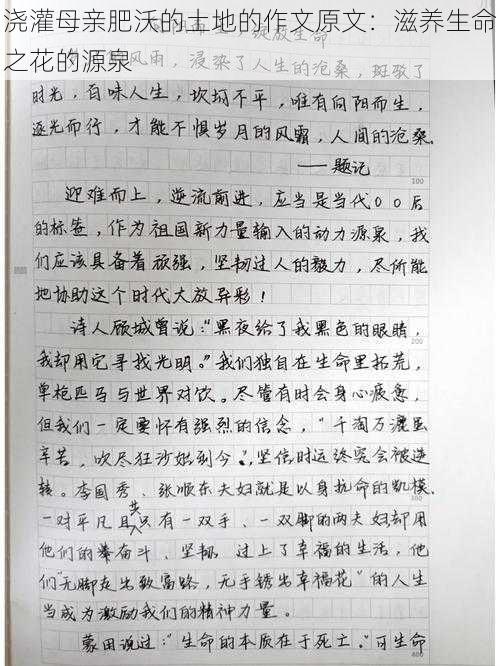 浇灌母亲肥沃的土地的作文原文：滋养生命
之花的源泉
绽放生命
风雨，浸染了人生的沧桑，斑驳了
时光，百味人生，坎坷不平，唯有向阳而生，
逐光而行，才能不惧岁月的风霜，人间的沧桑。
——题记
100
迎难而上，逆流前进，应当是当代00后
的标签，作为祖国新力量输入的动力源泉，我
们应该具备着顽强，坚韧过人的毅力，尽所能
地协助这个时代大放异彩！
诗人顾城曾说："黑夜给了我黑色的眼睛，
200
我却用它寻找光明。"我们独自在生命里拓荒，
单枪匹马与世界对饮。尽管有时会身心疲惫，
但我们一定要怀有强烈的信念，"千淘万漉虽
辛苦，吹尽狂沙始到今"，坚信时运终究会被逆
转。李国秀、张顺东夫妇就是以身抗命的凯模。
300
一对平凡且共只有一双手、一双脚的两夫妇却用
他们的拳奋斗、坚韧过上了幸福的生活，他
们"无脚走出致富路，无手绣出幸福花"的人生
当成为激励我们的精神力量。
蒙田说过："生命的本质在于死亡。"可生命
400